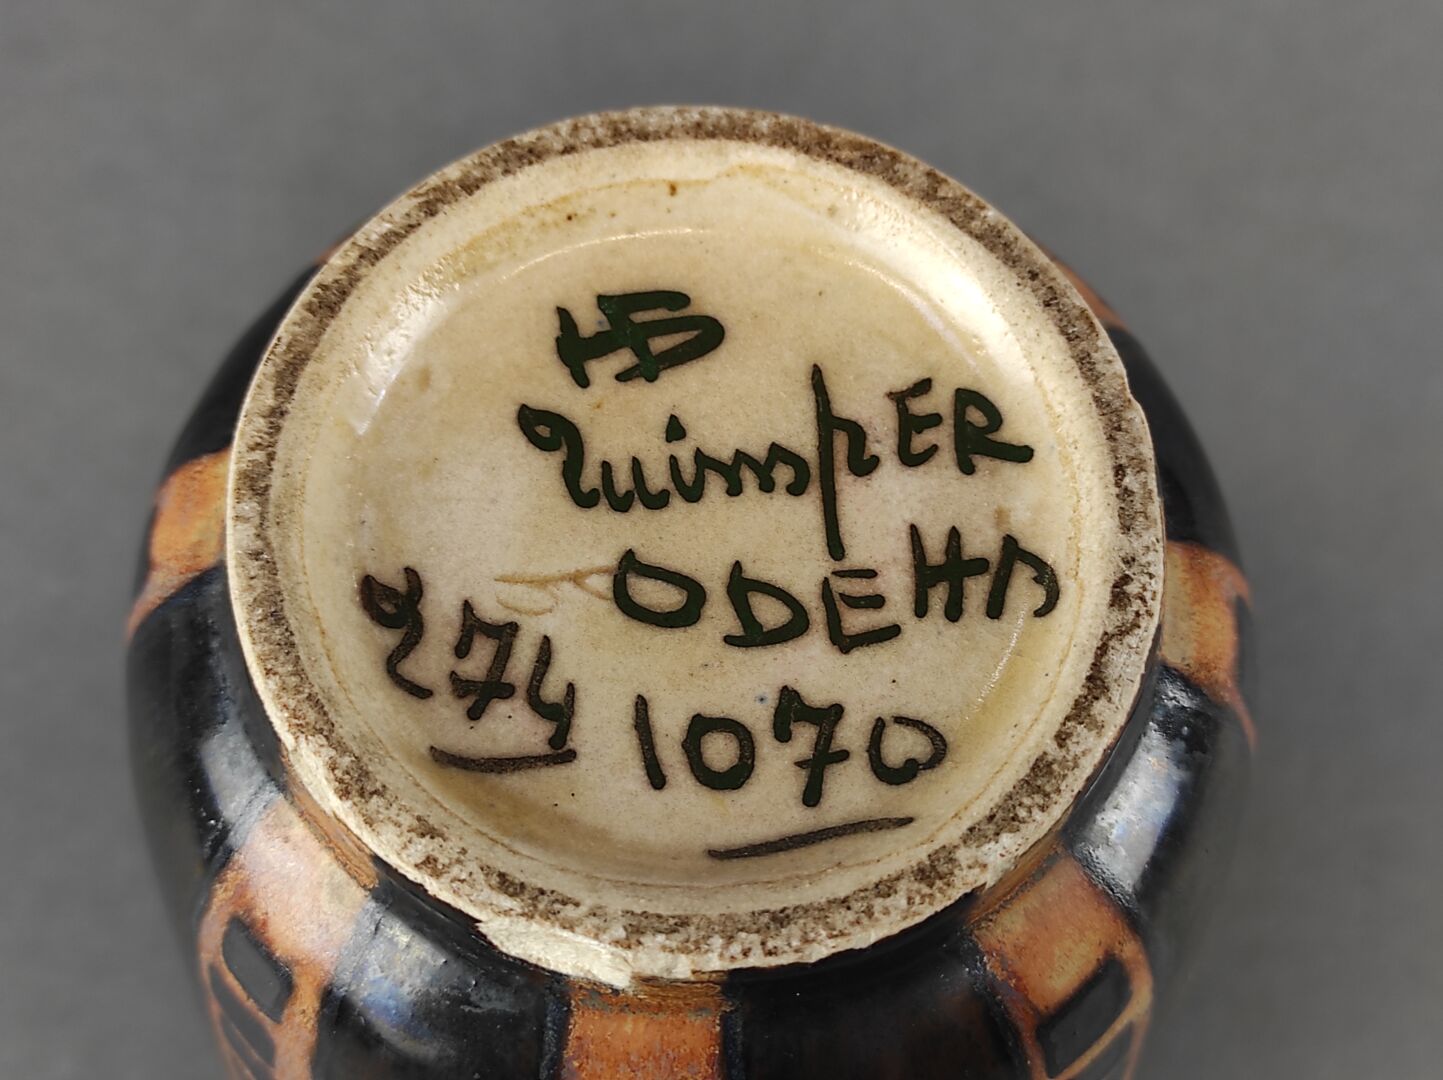 HB
QuimpER
ODEHA
274
1070